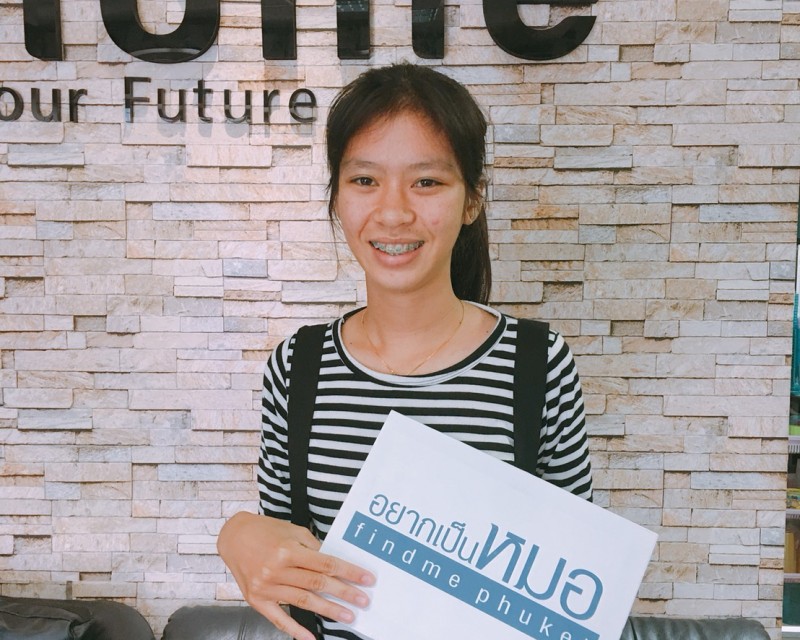 our Future
อยากเป็นหมอ
findme phuket